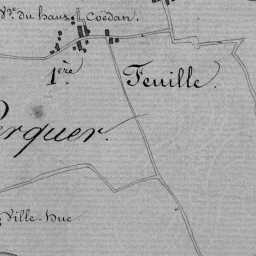 Vge. du haut Coëdan.
1ère Feuille.
erquer.
Ville-hue